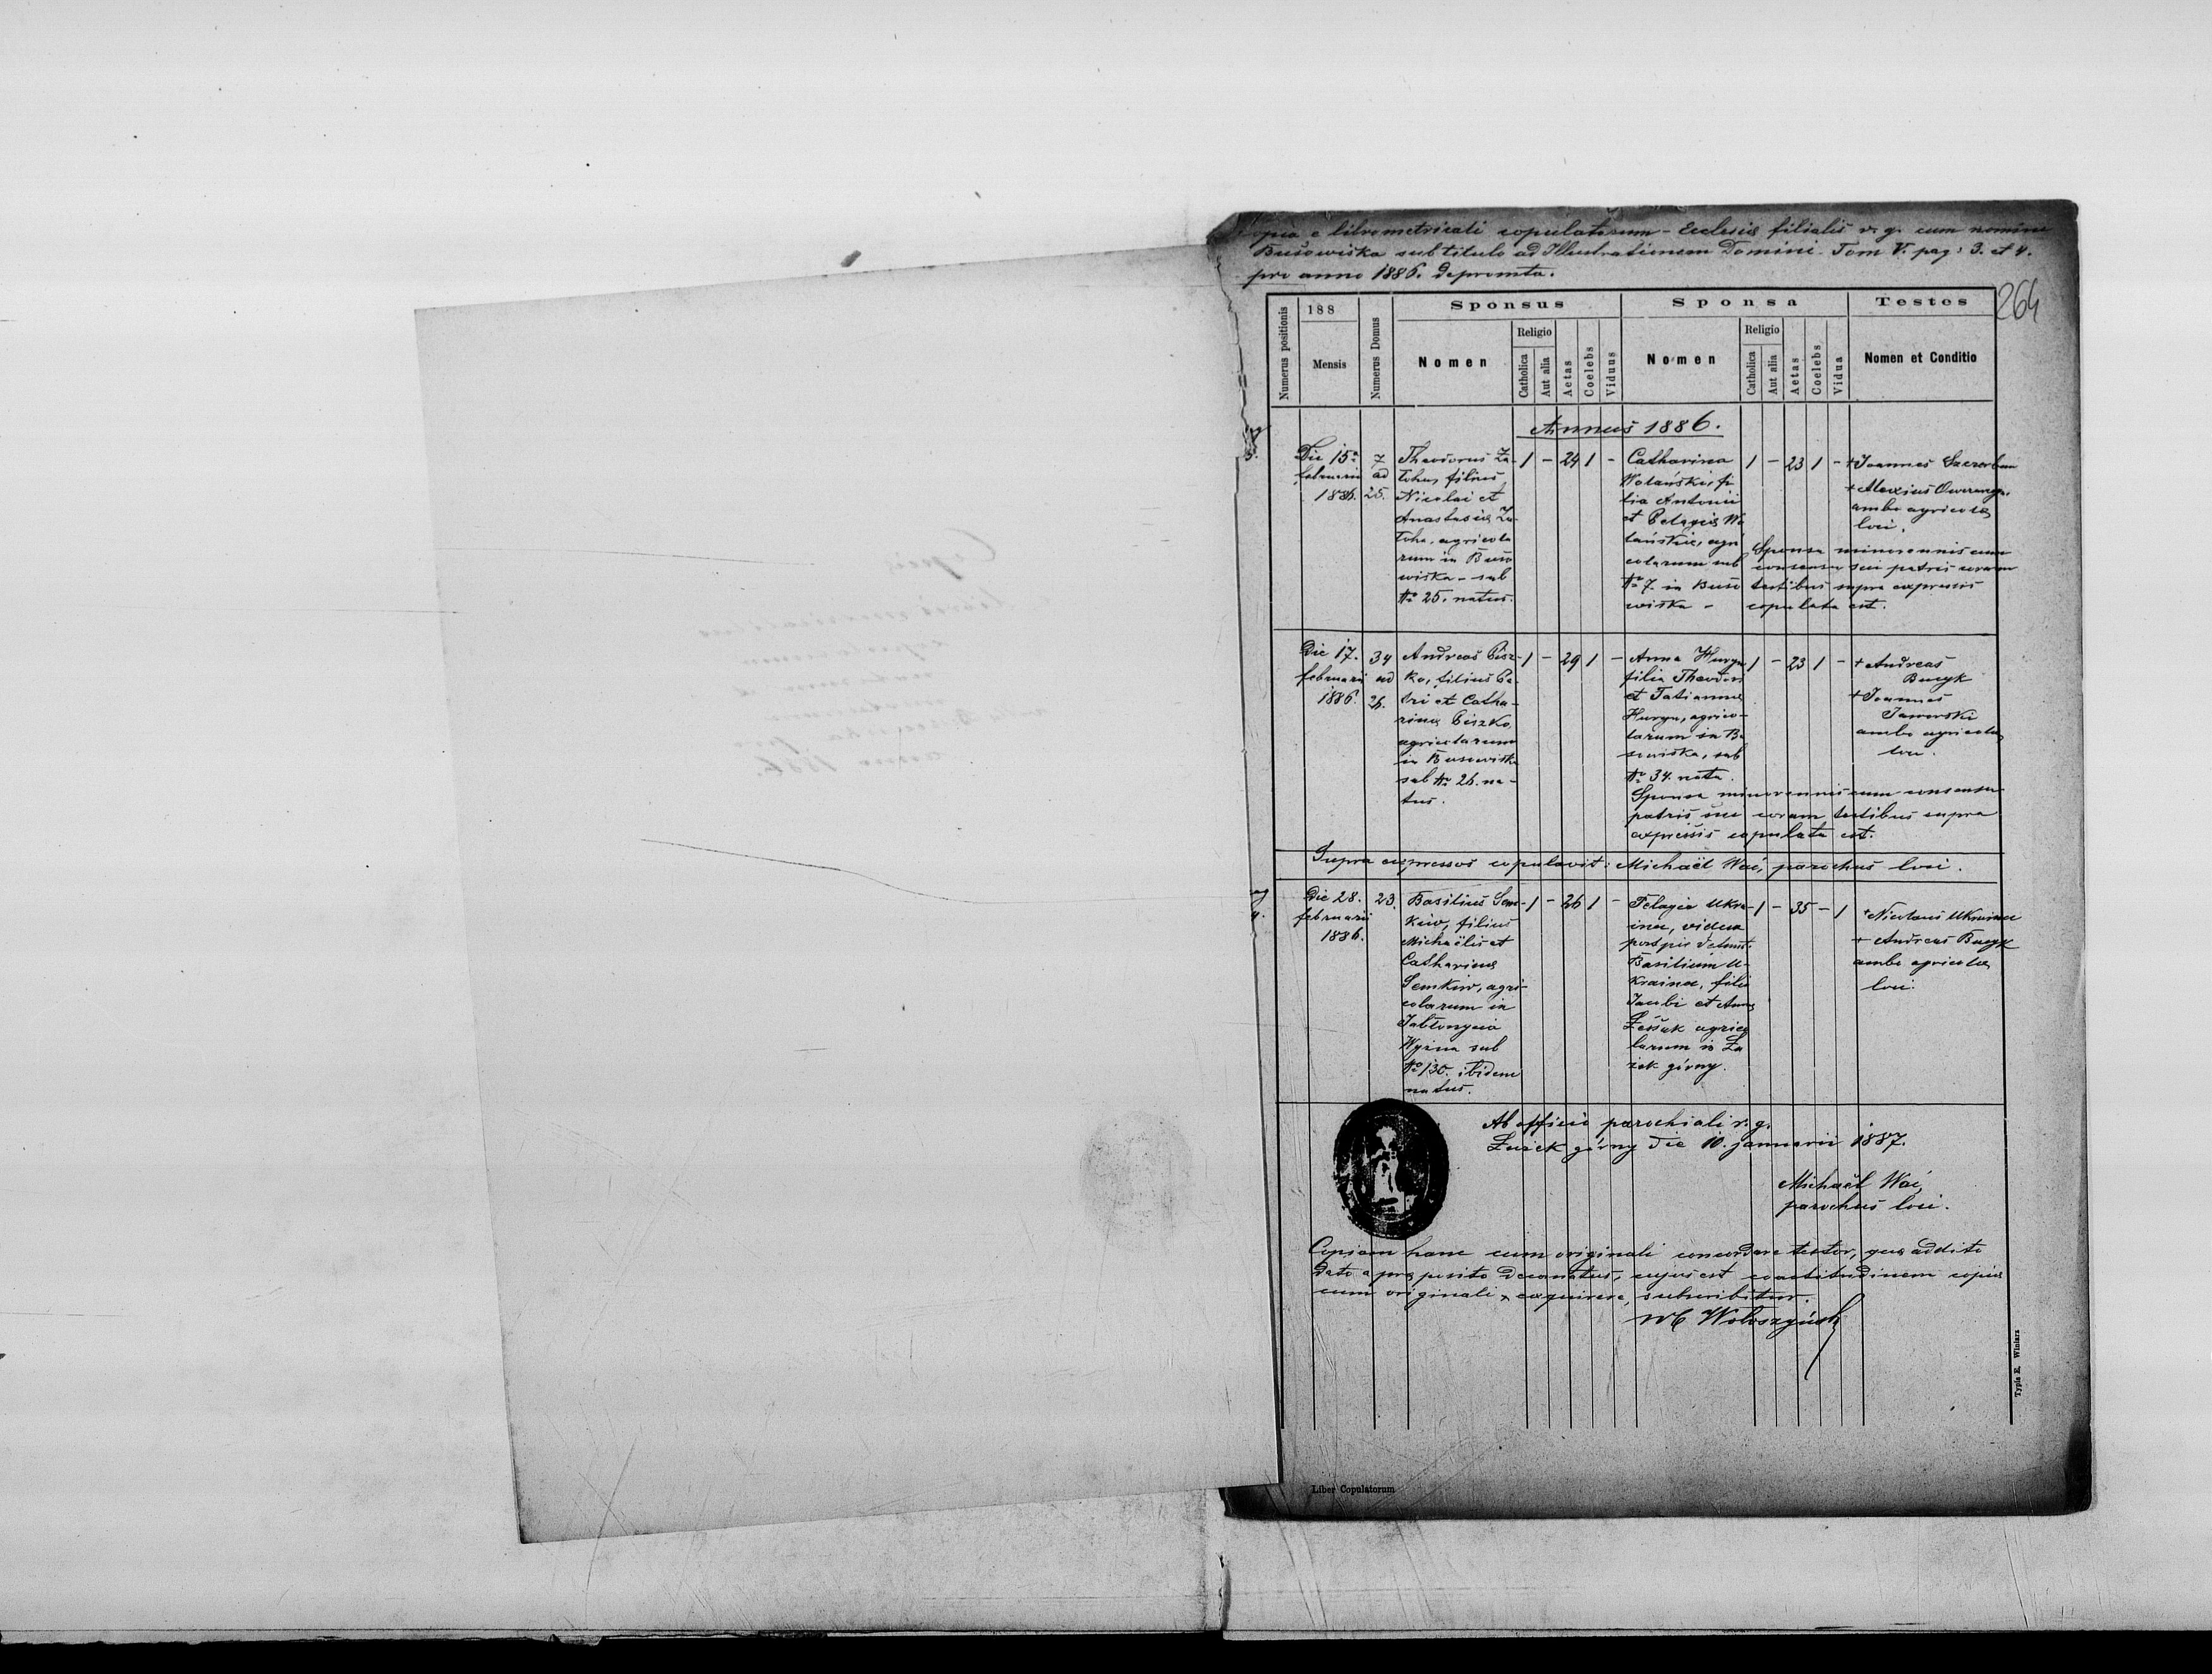 Copia e libro metricali copulatorum - Ecclesiæ filialis r. g. cum nomine
Busowiska sub titulo ad Illustrationem Domini - Tom V. pag: 3. et 4.
pro anno 1886. depromta.
264
Numerus positionis
188
Mensis
Numerus Domus
Sponsus
Nomen
Religio
Catholica
Aut alia
Aetas
Coelebs
Viduus
Sponsa
Nomen
Religio
Catholica
Aut alia
Aetas
Coelebs
Vidua
Testes
Nomen et Conditio
Annus 1886.
3.
Die 15ª
februarii
1886.
7
ad
25.
Theodorus Za-
toha, filius
Nicolai et
Anastasiæ Za-
toha, agricola-
rum in Buso
wiska - sub
No 25. natus.
1 - 24 1 -
Catharina
Wolańska, fi
lia Antonii
et Pelagiæ Wo
lańskie, agri
colarum sub
No 7. in Buso
wiska -
1 - 23 1 -
+ Joannes Szczerban
+ Alexius
ambo agricolæ
loci.
Sponsa minorennis cum
consensu sui patris coram
testibus supra expressis
copulata est.
Die 17.
februarii
1886.
34
ad
26.
Andreas Pisz-
ko, filius Pe-
tri et Catha-
rinæ Piszko,
agricolarum
in Busowiska
sub No 26. na-
tus.
1 - 29 1 -
Anna Huryn
filia Theodori
et Tatiannæ
Huryn, agrico-
larum in Bu
sowiska, sub
No 34. nata.
1 - 23 1 -
+ Andreas
Bucyk
+ Joannes
Jaworski
ambo agricolæ
loci.
Sponsa minorennis cum consensu
patris sui coram testibus supra
expressis copulata est.
Supra expressos copulavit: Michaël Wać, parochus loci.
4.
Die 28.
februarii
1886.
23.
Basilius Sem-
kiw, filius
Michaëlis et
Catharinæ
Semkiw, agri-
colarum in
Jabłonycia
Wyżna sub
No 130. ibidem
natus.
1 - 26 1 -
Pelagia Ukra-
inec, vidua
post pie defunct.
Basilium U-
krainec, filia
Jacobi et Annæ
Leśśak agrico
larum in Łu
żek górny.
1 - 35 - 1
+ Nicolaus Ukrainec
+ Andreas Bucyk
ambo agricolæ
loci.
Ab officio parochiali r. g.
Łużek górny die 10. januarii 1887.
Michaël Wać
parochus loci.
Copiam hanc cum originali concordare testor, quæ addito
dato a præposito decanatus, cujus est exactitudinem copiæ
cum originali exquirere, subscribitur.
Wołoszyński
Typis E. Winiarz
Liber Copulatorum